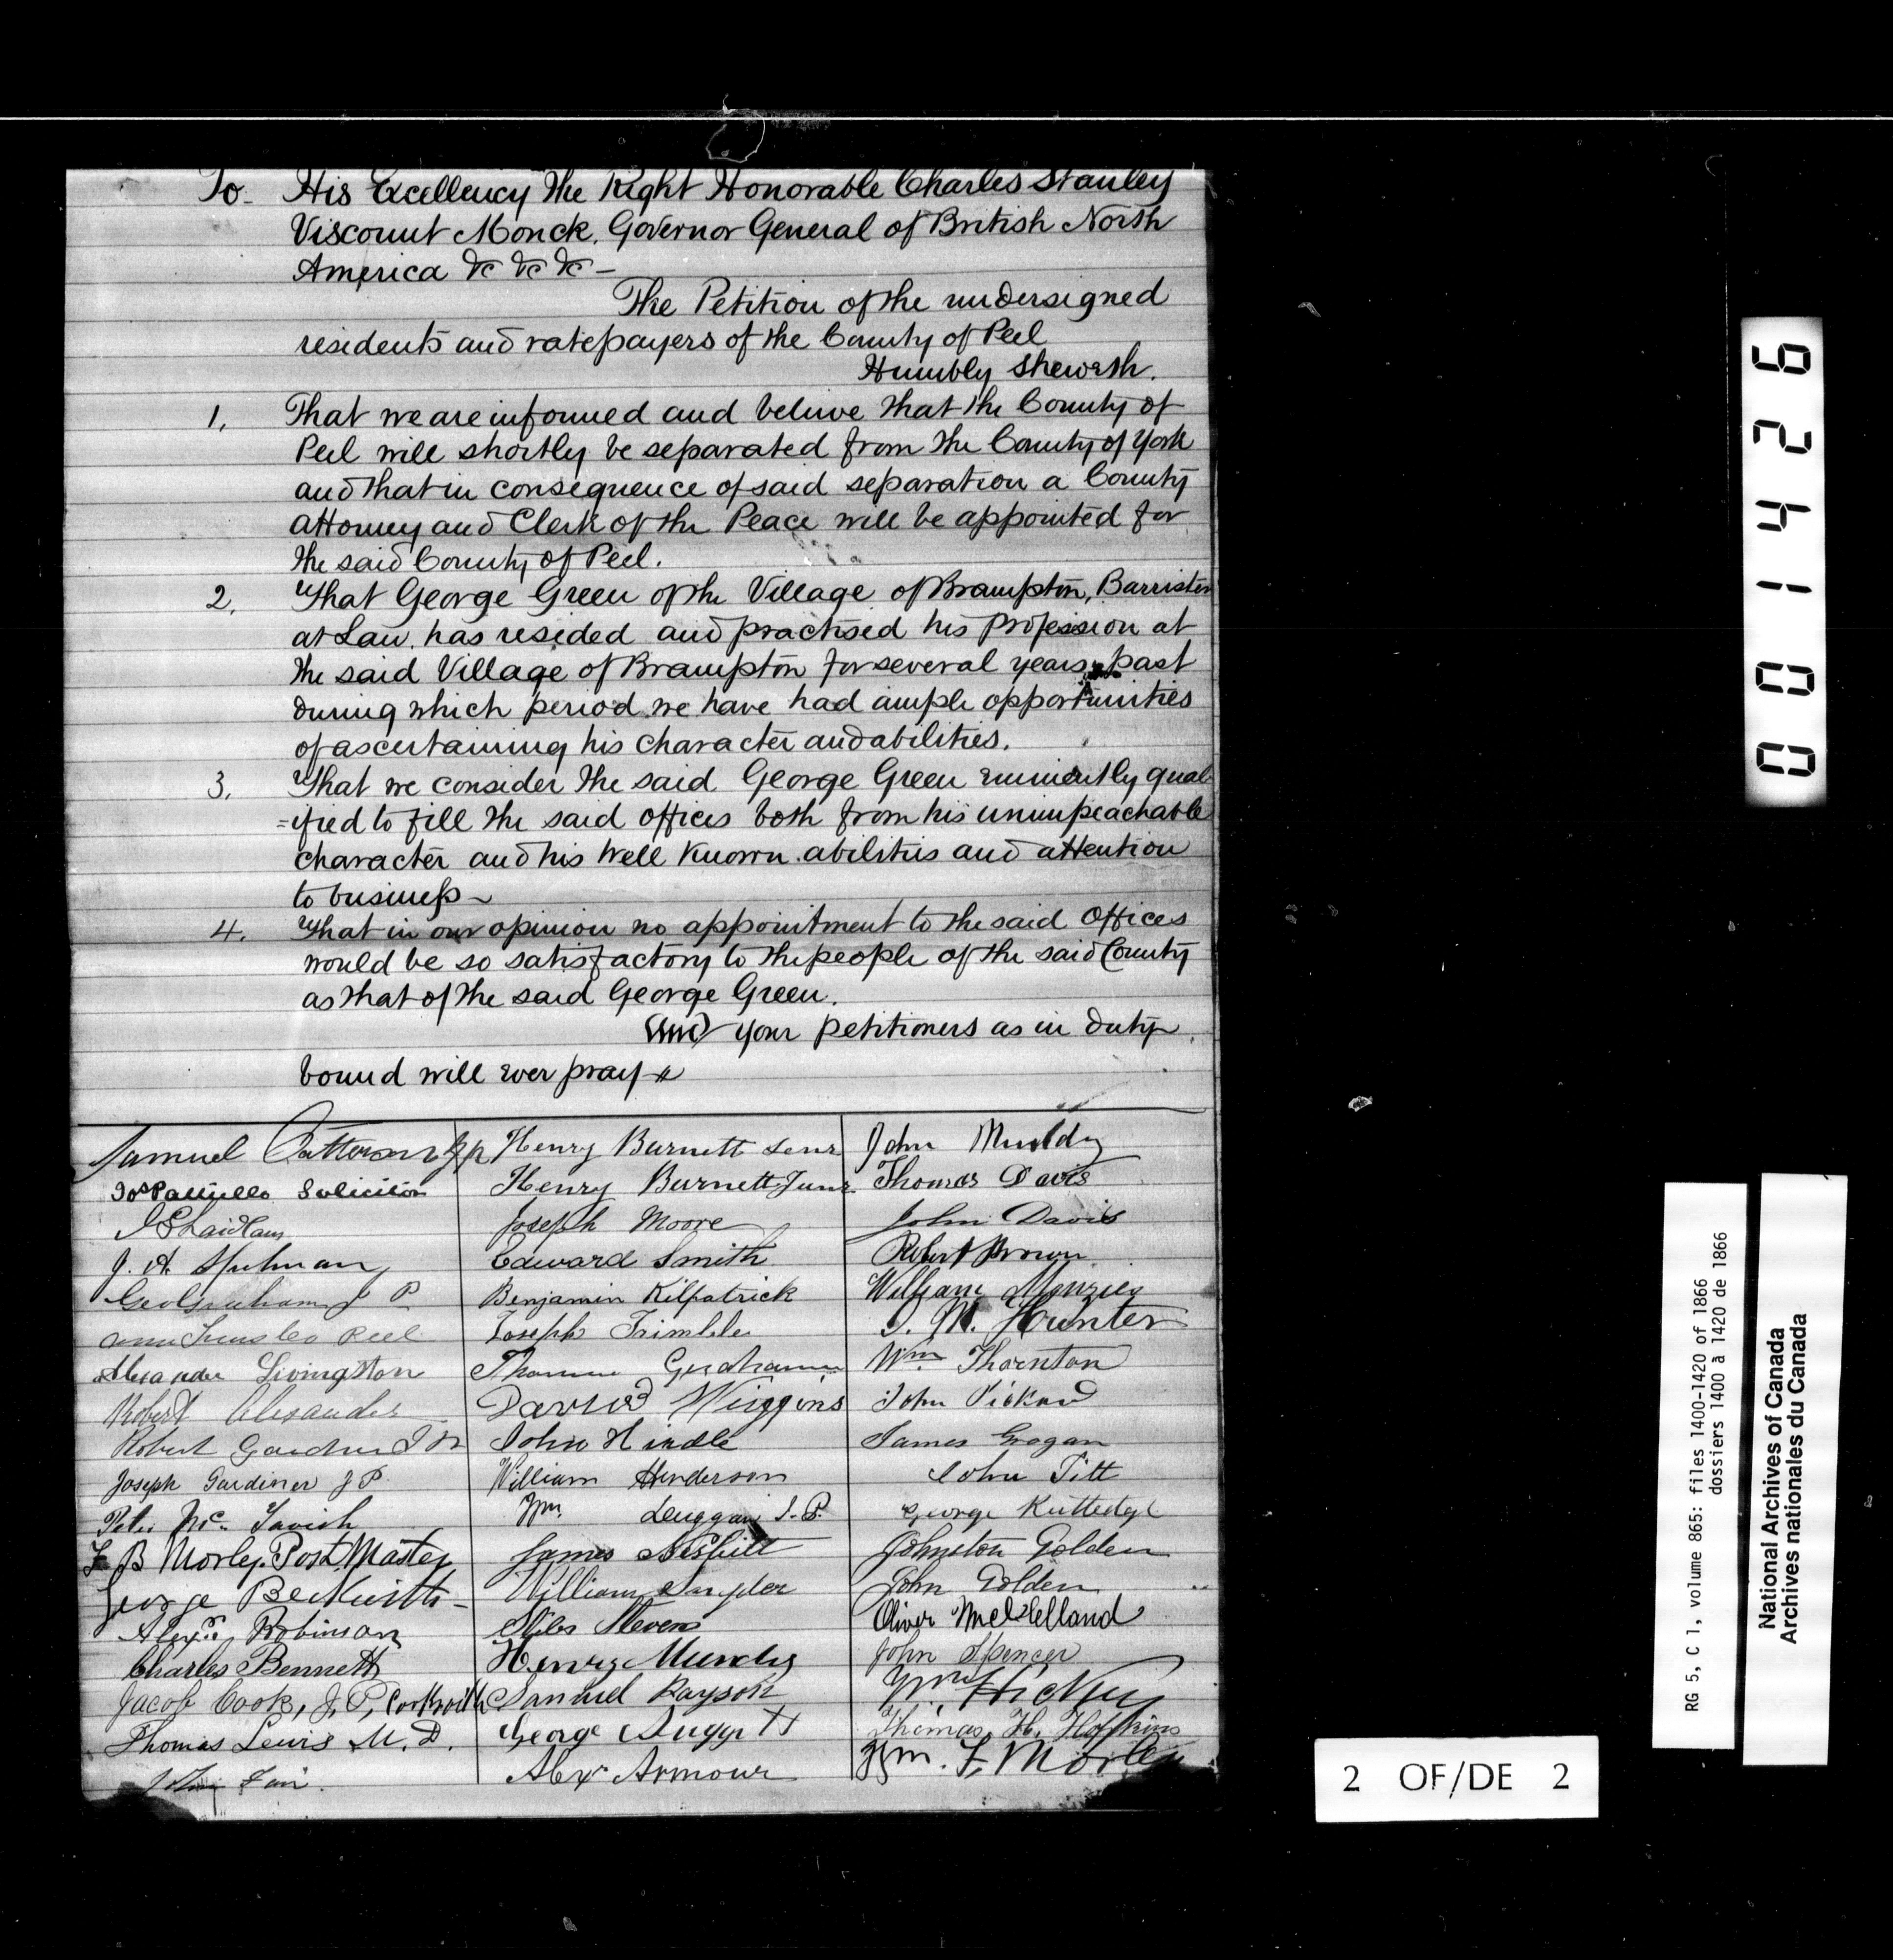 To. His Excellency The Right Honorable Charles Stanley
Viscount Monck, Governor General of British North
America &c &c &c –
The Petition of the undersigned
residents and ratepayers of the County of Peel
Humbly Sheweth.
1. That we are informed and believe that the County of
Peel will shortly be separated from the County of York
and that in consequence of said separation a County
attorney and Clerk of the Peace will be appointed for
the said County of Peel.
2. That George Green of the Village of Brampton, Barrister
at Law, has resided and practised his profession at
the said Village of Brampton for several years past
during which period we have had ample opportunities
of ascertaining his character and abilities.
3. That we consider the said George Green eminently qual
=ified to fill the said offices both from his unimpeachable
character and his well known abilities and attention
to business –
4. That in our opinion no appointment to the said Offices
would be so satisfactory to the people of the said County
as that of the said George Green.
And your petitioners as in duty
bound will ever pray
Samuel Patterson JP
Solicitor
J. A.
J P
Peel
Alexander Livingston
Robert Alexander
Robert
Joseph Gardiner J P.
Peter McTavish
F B Morley Post Master
George Beckwith
Alexr. Robinson
Charles Bennett
Jacob Cook, J. P.,
Thomas Lewis M. D.
Henry Burnett Senr
Henry Burnett Junr.
Joseph Moore
Edward Smith
Benjamin Kilpatrick
Joseph Trimble
Thomas Graham
David Wiggins
John Hindle
William Henderson
Wm Duggan J. P.
James Nesbitt
William Snyder
Stevens
Henry Mundy
Samuel Rayson
George
Alexr Armour
John Mundy
Thomas Davis
John Davis
Robert Brown
William Menzies
Hunter
Wm Thornton
John Pickard
James Grogan
John Titt
George
Johnston Golden
John Golden
Oliver
John Spencer
Wm
Thomas H. Hopkins
Wm. F. Morley
001426
2 OF/DE 2
RG 5, C 1, volume 865: files 1400-1420 of 1866
dossiers 1400 à 1420 de 1866
National Archives of Canada
Archives nationales du Canada